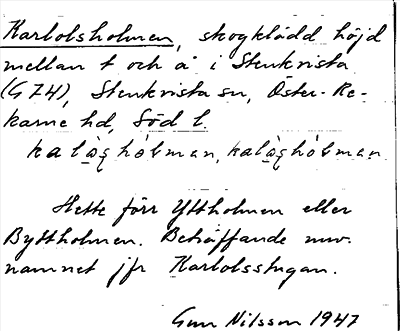 Karlolsholmen, skogklädd höjd
mellan t och å i Stenkvista
(G74), Stenkvista sn, Öster-Re-
karne hd, Söd l.
kalo̱ꞩhòlman, kalo̱ꞩhólman
Hette förr Yttholmen eller
Byttholmen. Beträffande nuv.
namnet jfr Karlolsstugan.
Gun Nilsson 1947